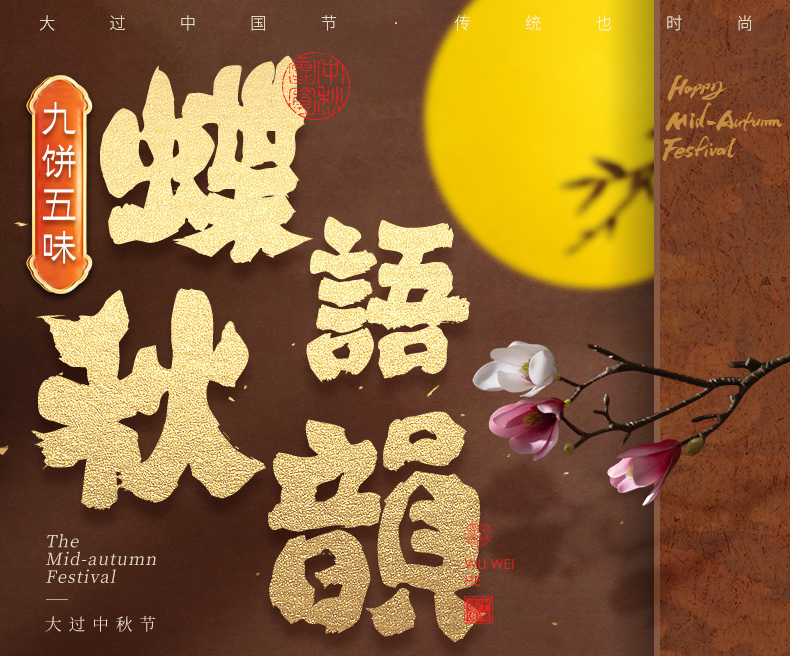 大过中国节·传统也时尚
九饼五味
蝶語
秋韻
Happy
Mid-Autumn
Festival
WU WEI
The
Mid-autumn
Festival
大过中秋节